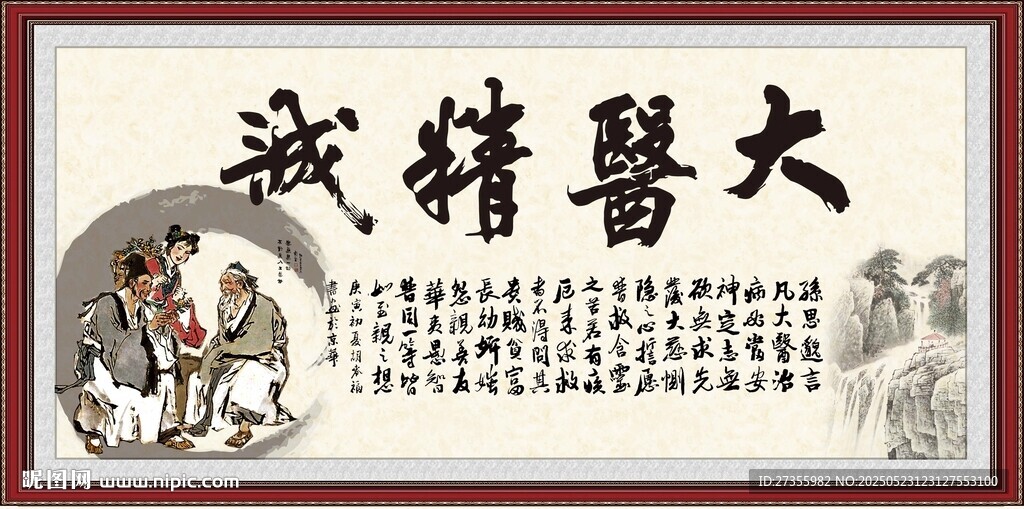 大醫精誠
孫思邈言
凡大醫治
病必當安
神定志無
欲無求先
發大慈惻
隐之心誓愿
普救含靈
之苦若有疾
厄来求救
者不得問其
貴賤貧富
長幼妍媸
怨親善友
華夷愚智
普同一等皆
如至親之想
庚寅初夏胡
書於京華
昵图网 www.nipic.com
ID:27355982 NO:20250523123127553100